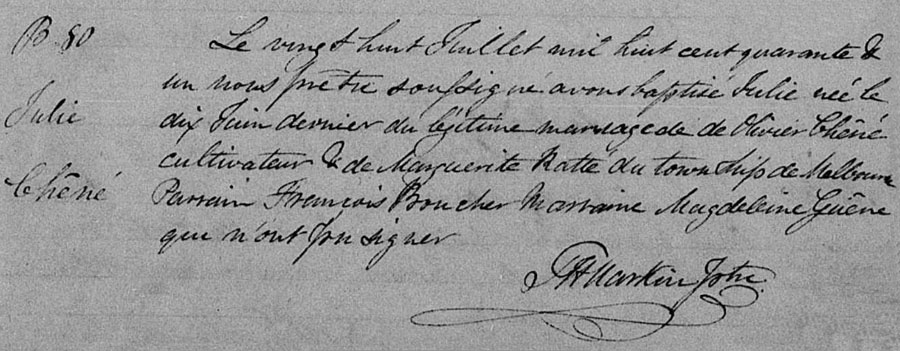 B 80
Julie
Chêné
Le vingt huit Juillet mil huit cent quarante &
un nous prêtre soussigné avons baptisé Julie née le
dix Juin dernier du légitime mariage de de Olivier Chêné
cultivateur & de Marguerite Ratté du township de Melbourne
Parrain François Boucher Marraine Magdeleine Guêne
qui n'ont pu signer
Harkin Ptre